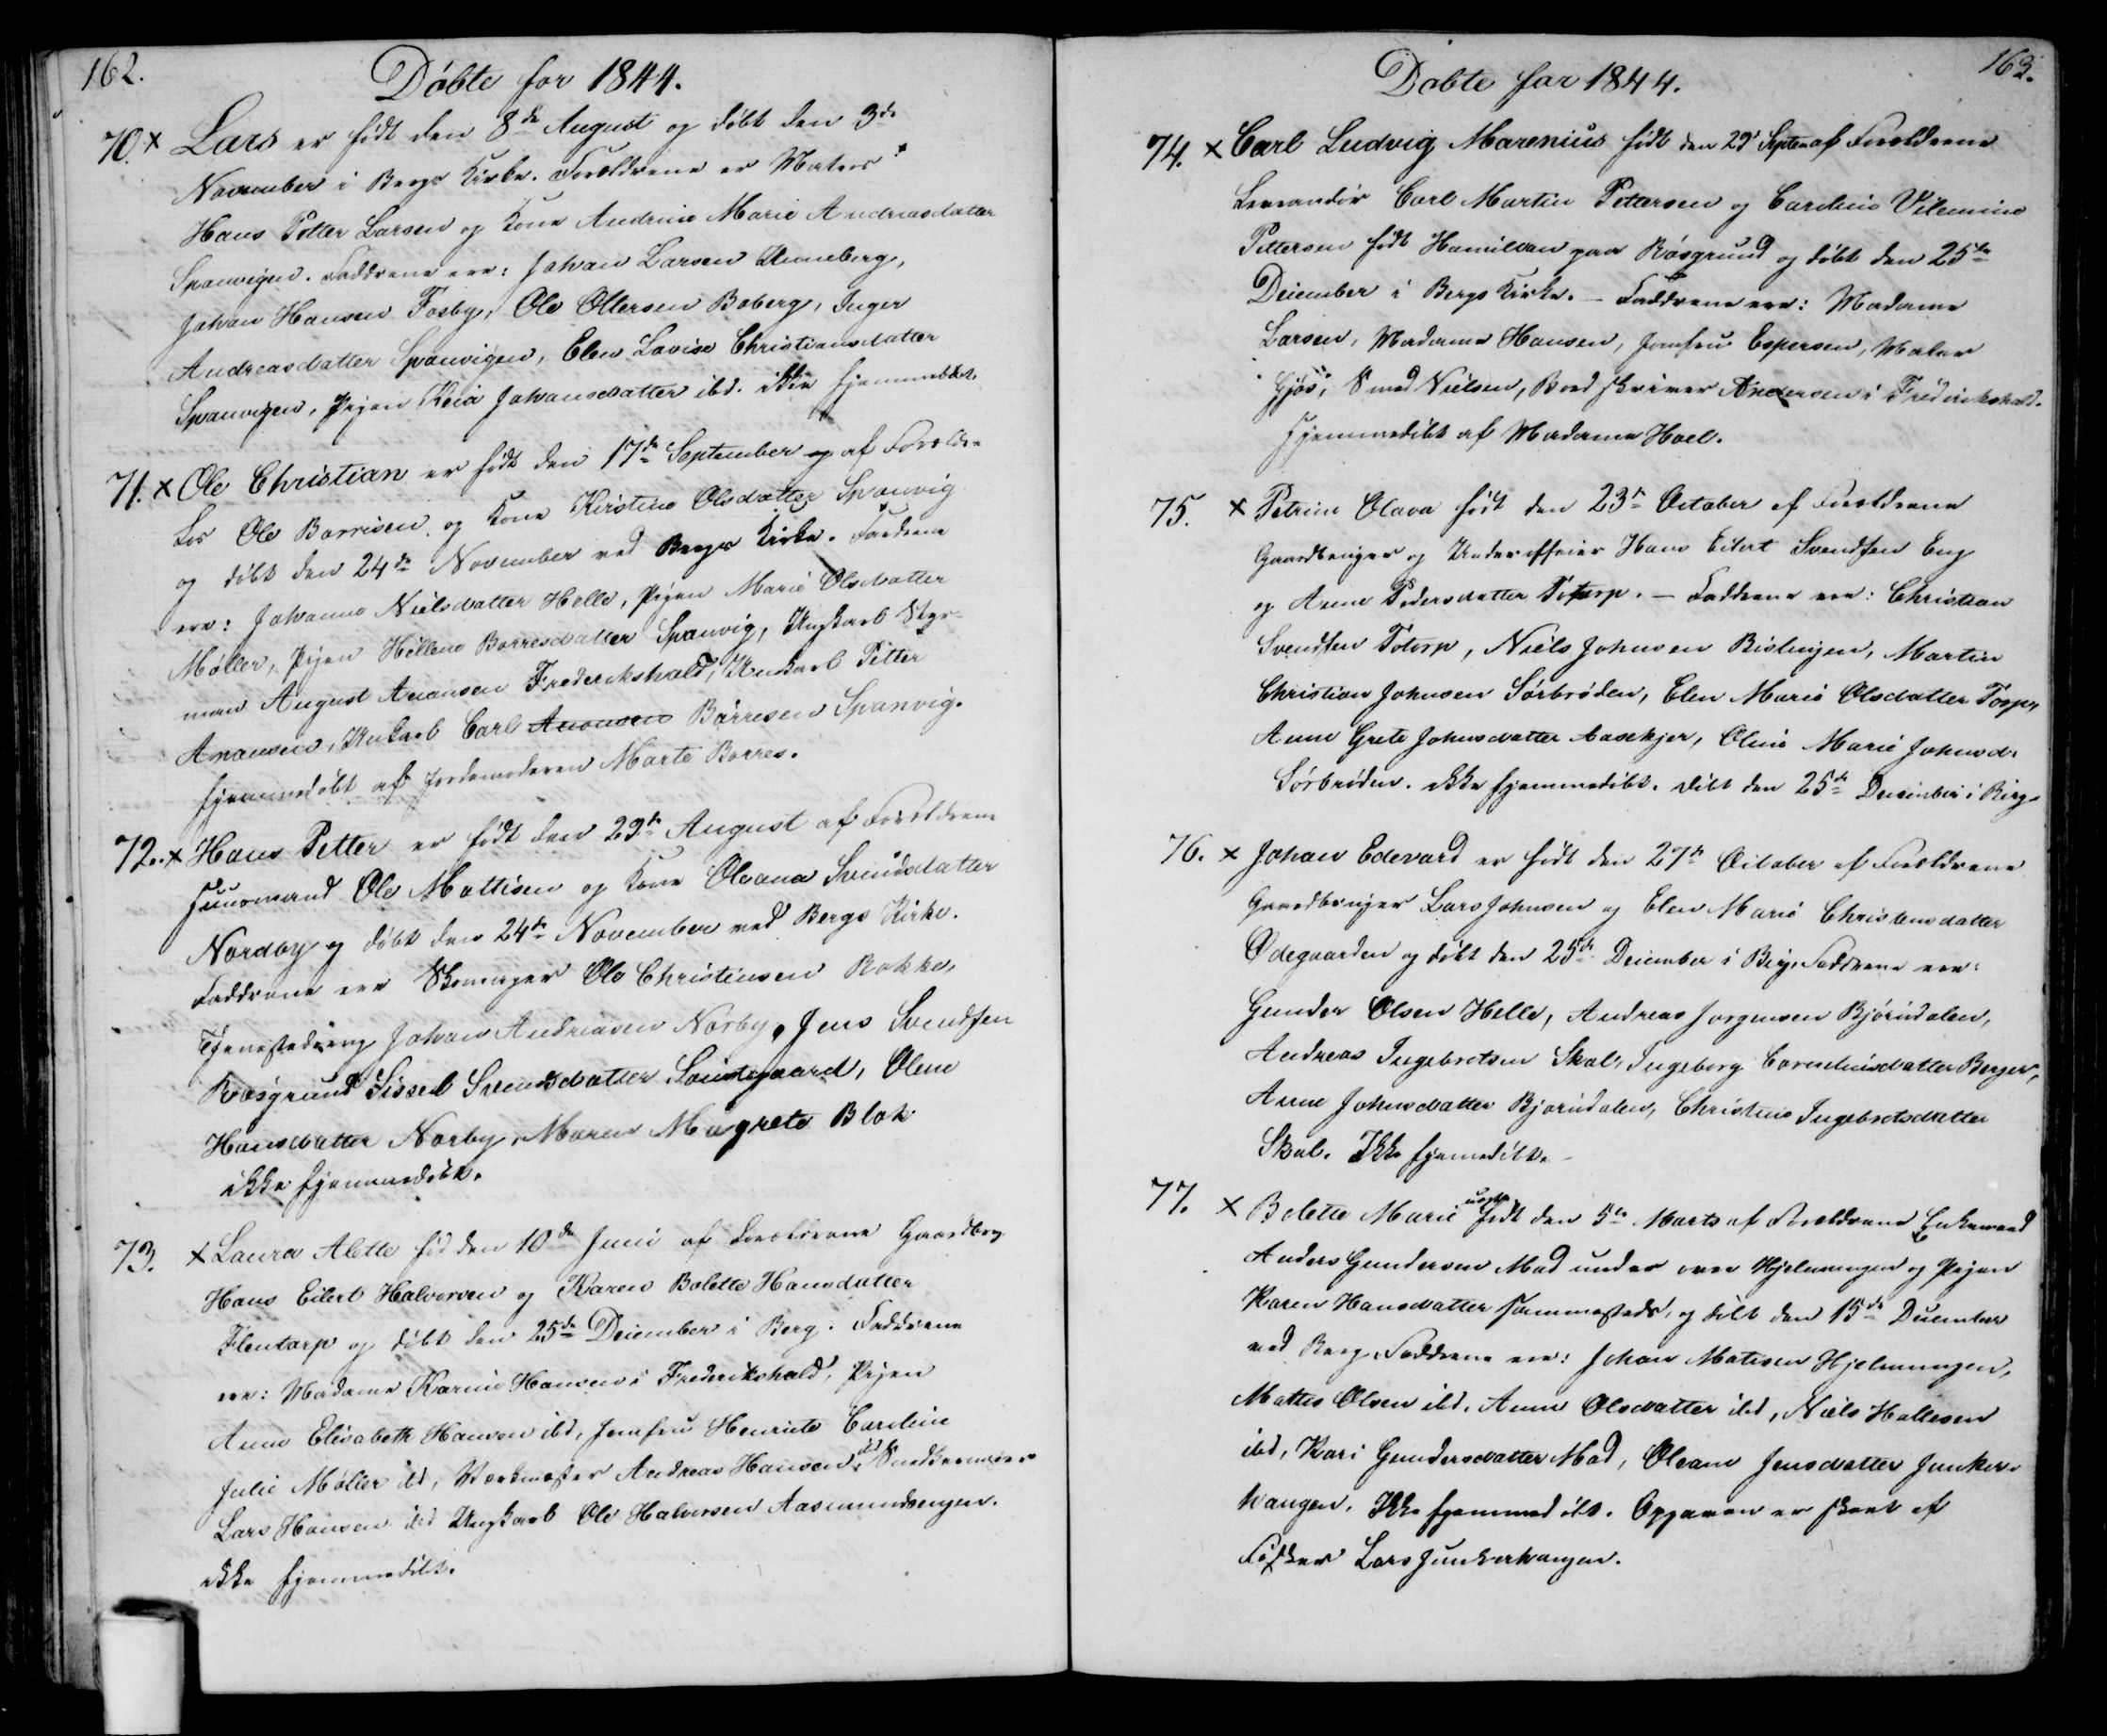 162.
Döbte for 1844.
70. x Lars er født den 8de August og døbt den 3de
November i Bergs Kirke. Forældrene er Matros
Hans Petter Larsen og Kone Andrine Marie Andreasdatter
Spanvigen. Fadderne ere: Johan Larsen Unneberg,
Johan Hansen Fosby, Ole Ollersen Boberg, Inger
Andreasdatter Spanvigen, Elen Lovise Christiansdatter
Spanvigen, Pigen Keia Johansdatter ibd. ikke hjemmedøbt
71. x Ole Christian er født den 17de September og af Foreldre
Los Ole Borresen og Kone Kirstine Olsdatter Spanvig
og døbt den 24de November ved Bergs Kirke. Fadderne
ere: Johanne Nielsdatter Helle, Pigen Marie Olsdatter
Møller, Pigen Hellene Borresdatter Spanvig, Ungkarl Styr-
man August Anonsen Frederikshald, Unkarl Petter
Anonsen, Unkarl Carl Anonsen Börresen Spanvig.
hjemmedøbt af Jordemoderen Marte Borres.
72. x Hans Petter er født den 29de August af Foreldrene
Huusmand Ole Mattisen og Kone Oleana Svendsdatter
Nordby og døbt den 24de November ved Bergs Kirke.
Fadderne ere Skomager Ole Christensen Rokke,
Tjenestedreng Johan Andreasen Norby, Jens Svendsen
Röesgrund Sissel Svendsdatter Sandegaard, Olene
Hansdatter Norby, Maren Magrete Blok
ikke hjemmedøbt.
73. x Laura Alette fød den 10de Juni af Foreldrene Gaardbrg
Hans Eilert Halvorsen og Karen Bolette Hansdatter
Flentorp og døbt den 25de December i Berg. Fadderne
ere: Madame Karine Hansen i Frederikshald, Pigen
Anne Elisabeth Hansen ibd, Jomfru Henriete Caroline
Julie Møller ibd, Værkmester Andreas Hansen, ibd Snedkermester
Lars Hansen ibd Ungkarl Ole Halvorsen Aasmundrengen.
ikke hjemmedøbt.
163.
Döbte for 1844.
74. x Carl Ludvig Marenius født den 29de Septem af Foreldrene
Leverandör Carl Martin Pettersen og Caroline Vilemine
Pettersen født Hamilton paa Rösgrund og døbt den 25de
December i Bergs Kirke. - Fadderne ere: Madame
Larsen, Madame Hansen, Jomfru Espersen, Maler
Gjös, Smed Nielsen, Bordskriver Andersen i Fredrikshald.
Hjemmedøbt af Madame Hoel.
75. x Petrine Olava født den 23de October af Foreldrene
Gaardbruger og Underofficier Hans Eilert Svendsen Eng
og Anne Pedersdatter Totorp. - Fadderne ere: Christian
Svendsen Totorp, Niels Johnsen Bislingen, Martin
Christian Johnsen Sörbröden, Elen Marie Olsdatter Torp,
Anne Grete Johnsdatter Aaskjer, Oline Marie Johnsd.
Sörbröden. ikke hjemmedøbt. døbt den 25de December i Berg
76. x Johan Edevard er født den 27de October af Foreldrene
Gaardbruger Lars Johnsen og Elen Marie Christensdatter
Ødegaarden og døbt den 25de December i Berg. Fadderne ere:
Gunder Olsen Helle, Andreas Jørgensen Bjørndalen,
Andreas Ingebretsen Skal, Ingeborg Corneliusdatter Berger,
Anne Johnsdatter Bjørndalen, Christine Ingebretsdatter
Skal. Ikke hjemedøbt. -
77. x Bolette Marie uægte født den 5te Marts af Foreldrene Enkemand
Anders Gundersen Mad under øvre Hjelmungen og Pigen
Karen Hansdatter sammesteds, og døbt den 15de December
ved Berg. Fadderne ere: Johan Matisen Hjelmungen,
Mattis Olsen ibd. Anne Olsdatter ibd, Niels Hallesen
ibd, Kari Gundersdatter Mad, Oleane Jensdatter Junker-
haugen. Ikke hjemmedøbt. Opgaven er skeet af
Fisker Lars Junkerhaugen.